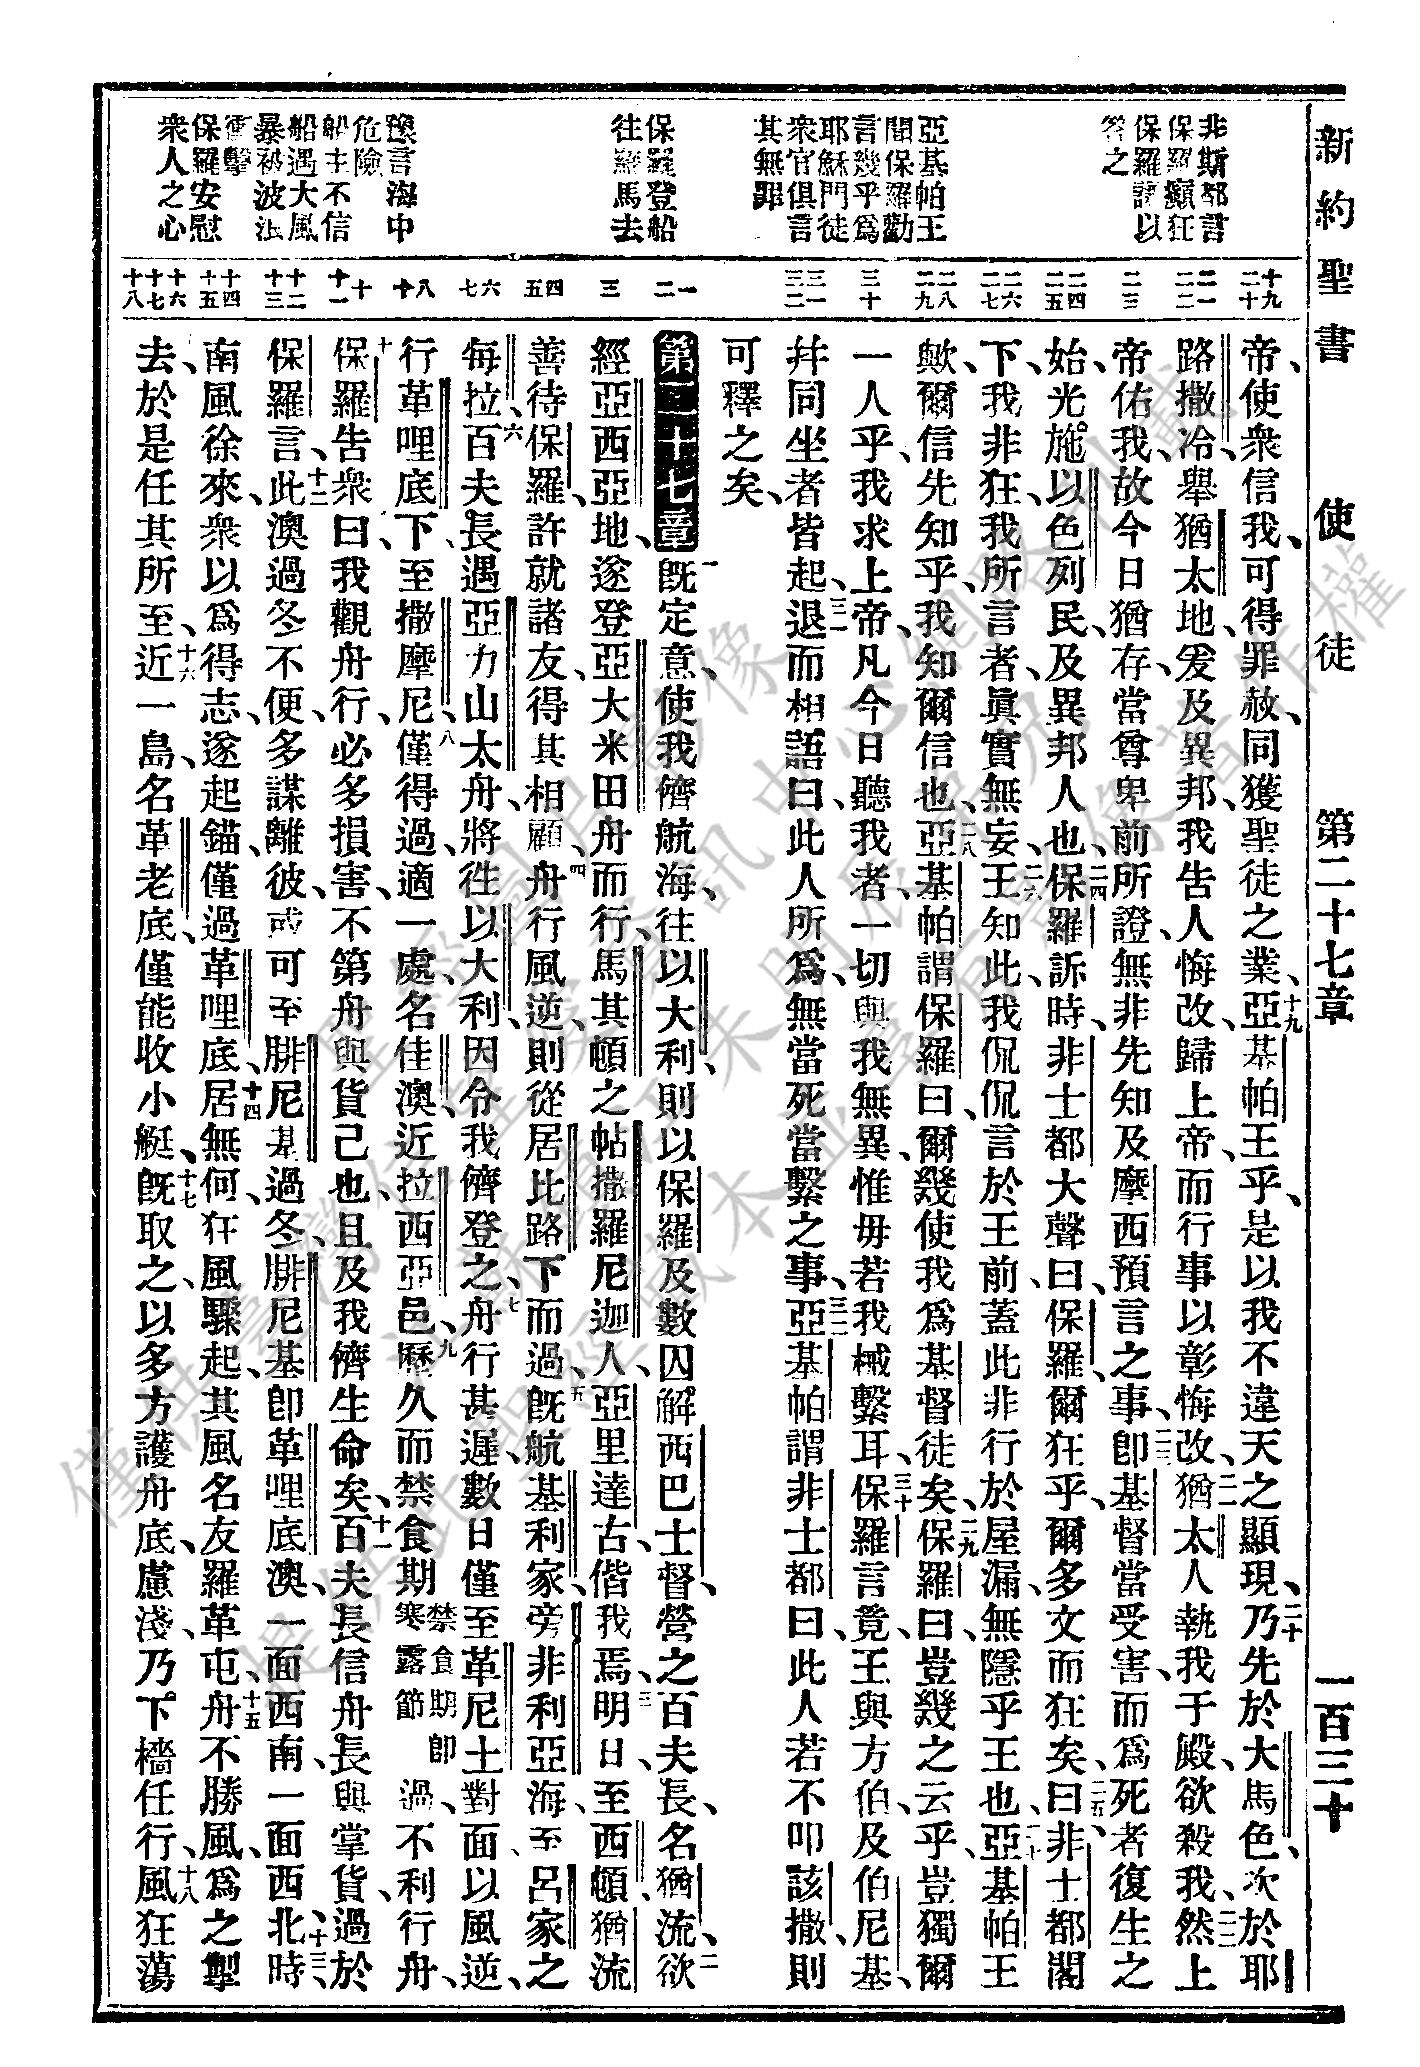 新約聖書 使徒 第二十七章 一百三十
非斯都言
保羅癲狂
保羅語以
答之
亞基帕王
聞保羅勸
言幾乎爲
耶穌門徒
衆官俱言
其無罪
保羅登船
往羅馬去
豫言海中
危險
船主不信
船遇大風
暴被波浪
衝擊
保羅安慰
衆人之心
十九
二十
二一
二二
二三
二四
二五
二六
二七
二八
二九
三十
三一
三二
一
二
三
四
五
六
七
八
九
十
十一
十二
十三
十四
十五
十六
十七
十八
帝、使衆信我、可得罪赦、同獲聖徒之業、十九亞基帕王乎、是以我不違天之顯現、二十乃先於大馬色、次於耶
路撒冷、舉猶太地、爰及異邦、我告人悔改、歸上帝、而行事以彰悔改、二一猶太人執我于殿、欲殺我、二二然上
帝佑我、故今日猶存、當尊卑前所證、無非先知及摩西預言之事、二三卽基督當受害、而爲死者復生之
始、光施以色列民、及異邦人也、二四保羅訴時、非士都大聲曰、保羅爾狂乎、爾多文而狂矣、二五曰、非士都閣
下、我非狂、我所言者、眞實無妄、二六王知此、我侃侃言於王前、蓋此非行於屋漏、無隱乎王也、二七亞基帕王
歟、爾信先知乎、我知爾信也、二八亞基帕謂保羅曰、爾幾使我爲基督徒矣、二九保羅曰、豈幾之云乎、豈獨爾
一人乎、我求上帝、凡今日聽我者、一切與我無異、惟毋若我械繫耳、三十保羅言竟、王與方伯、及伯尼基、
幷同坐者皆起、三一退而相語曰、此人所爲、無當死當繫之事、三二亞基帕謂非士都曰、此人若不叩該撒、則
可釋之矣、
第二十七章 一旣定意、使我儕航海、往以大利、則以保羅及數囚、解西巴士督、營之百夫長、名猶流、二欲
經亞西亞地、遂登亞大米田舟而行、馬其頓之帖撒羅尼迦人、亞里達古、偕我焉、三明日、至西頓、猶流
善待保羅、許就諸友、得其相顧、四舟行風逆、則從居比路下而過、五旣航基利家、旁非利亞海、至呂家之
每拉、六百夫長、遇亞力山太舟、將往以大利、因令我儕登之、七舟行甚遲、數日僅至革尼土對面、以風逆、
行革哩底下、至撒摩尼、八僅得過、適一處、名佳澳、近拉西亞邑、九歷久而禁食期禁食期卽寒露節過、不利行舟、
十保羅告衆曰、我觀舟行、必多損害、不第舟與貨己也、且及我儕生命矣、十一百夫長信舟長與掌貨、過於
保羅言、十二此澳過冬不便、多謀離彼、或可至腓尼基過冬、腓尼基卽革哩底澳、一面西南、一面西北、十三時、
南風徐來、衆以爲得志、遂起錨、僅過革哩底、十四居無何、狂風驟起、其風名友羅革屯、十五舟不勝風、爲之掣
去、於是任其所至、十六近一島、名革老底、僅能收小艇、十七旣取之、以多方護舟底、慮淺、乃下檣任行、十八風狂蕩